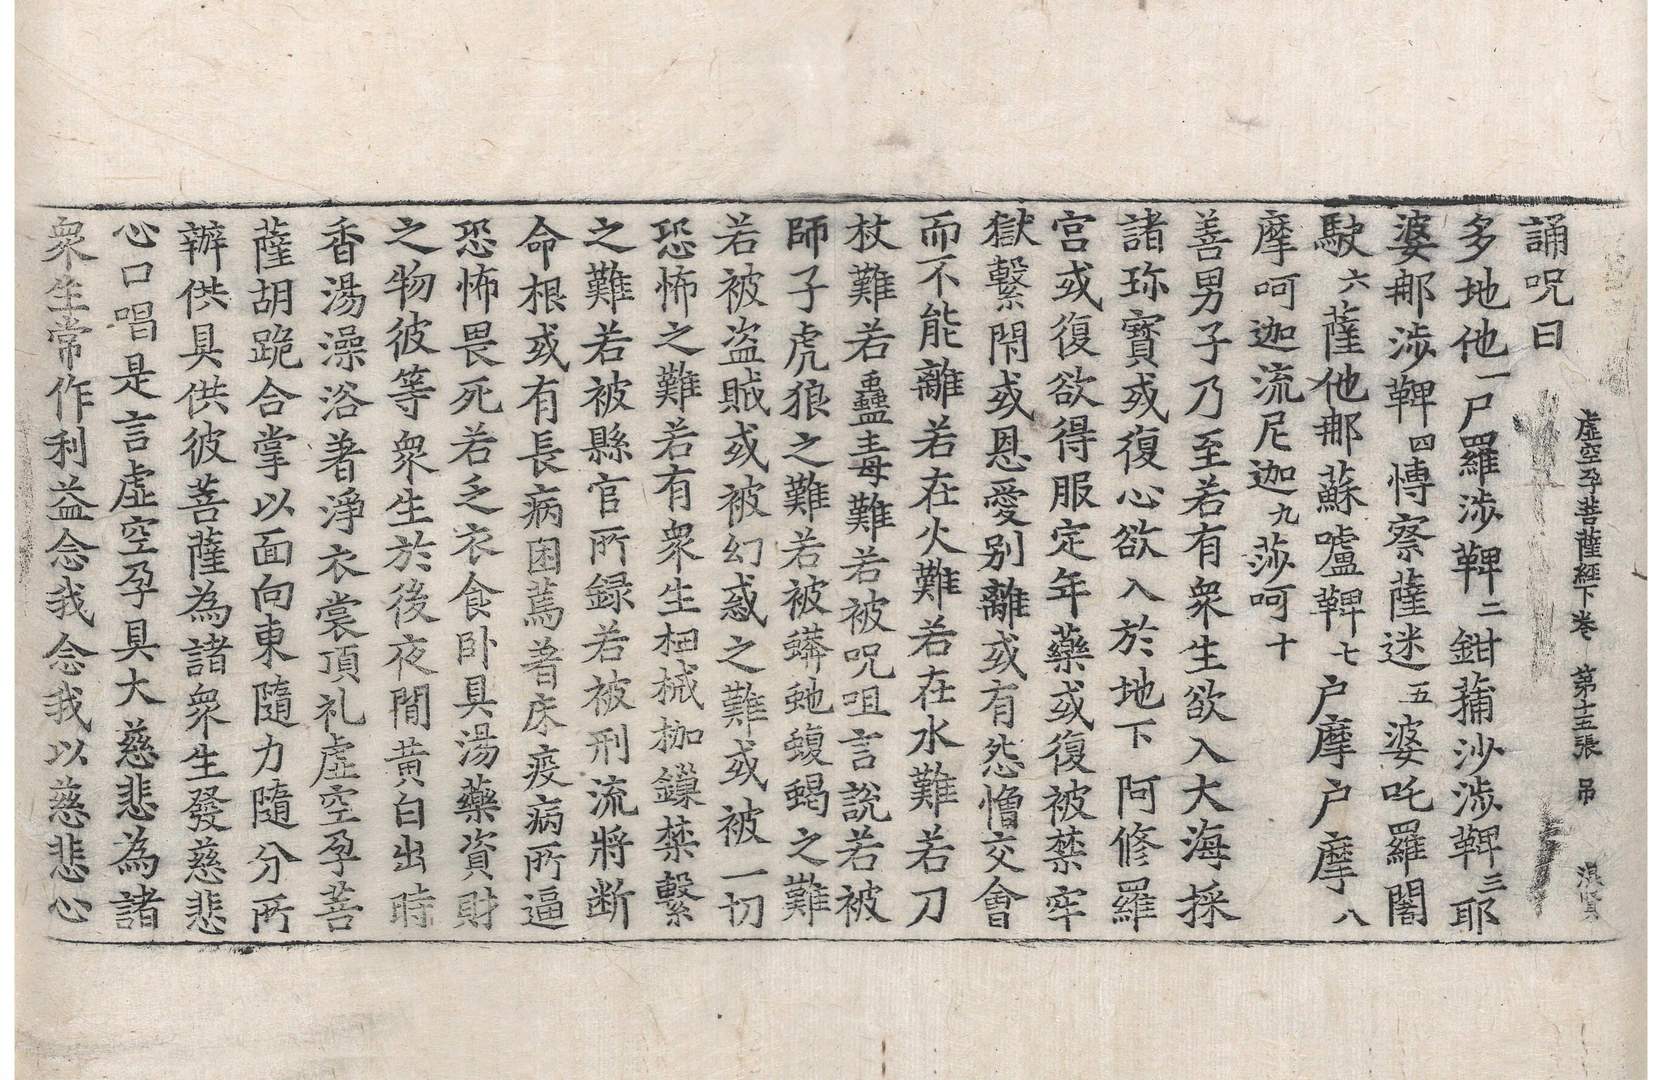 虛空孕菩薩經下卷 第十五張 吊
誦呪曰
多地他一尸羅涉鞞二鉗蒱沙涉鞞三耶
婆郍涉鞞四愽察薩迷五婆吒羅闍
駛六薩他郍蘇嚧鞞七户摩户摩八
摩呵迦流尼迦九莎呵十
善男子乃至若有衆生欲入大海採
諸珎寳或復心欲入於地下阿修羅
宫或復欲得服定年藥或復被禁牢
獄繫閇或恩愛别離或有怨憎交會
而不能離若在火難若在水難若刀
杖難若蠱毒難若被呪咀言說若被
師子虎狼之難若被蟒虵蝮蝎之難
若被盗賊或被幻惑之難或被一切
恐怖之難若有衆生杻械枷鏁禁繫
之難若被縣官所録若被刑流將断
命根或有長病困萬着床疫病所逼
恐怖畏死若乏衣食卧具湯藥資財
之物彼等衆生於後夜間黄白出時
香湯澡浴著淨衣裳頂礼虛空孕菩
薩胡跪合掌以面向東隨力隨分所
辦供具供彼菩薩為諸衆生發慈悲
心口唱是言虛空孕具大慈悲為諸
衆生常作利益念我念我以慈悲心